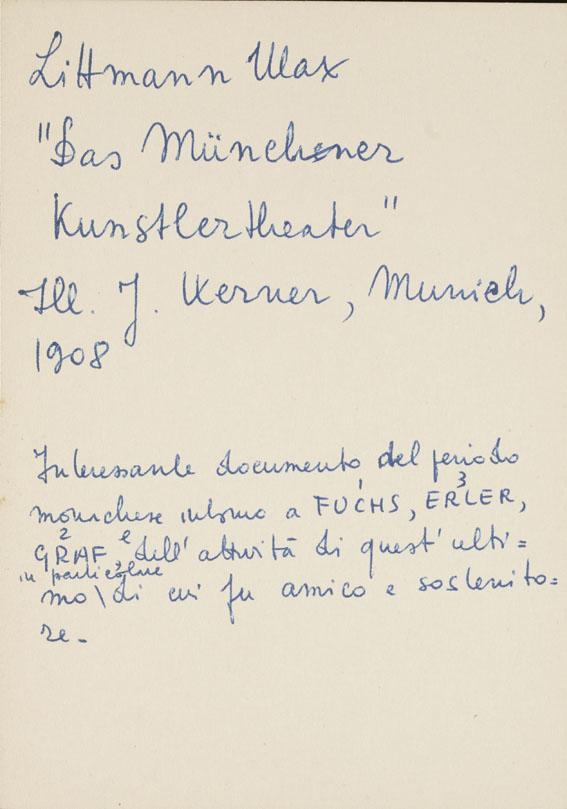 Littmann Max
"Das Münchener
Kunstlertheater"
Ill. J. Kerner, Munich,
1908
Interessante documento del periodo
monachese intorno a FUCHS, ERLER,
1 3
GRAF, e dell'attività di quest'ulti=
2
in particolare
mo \ di cui fu amico e sostenito=
re.